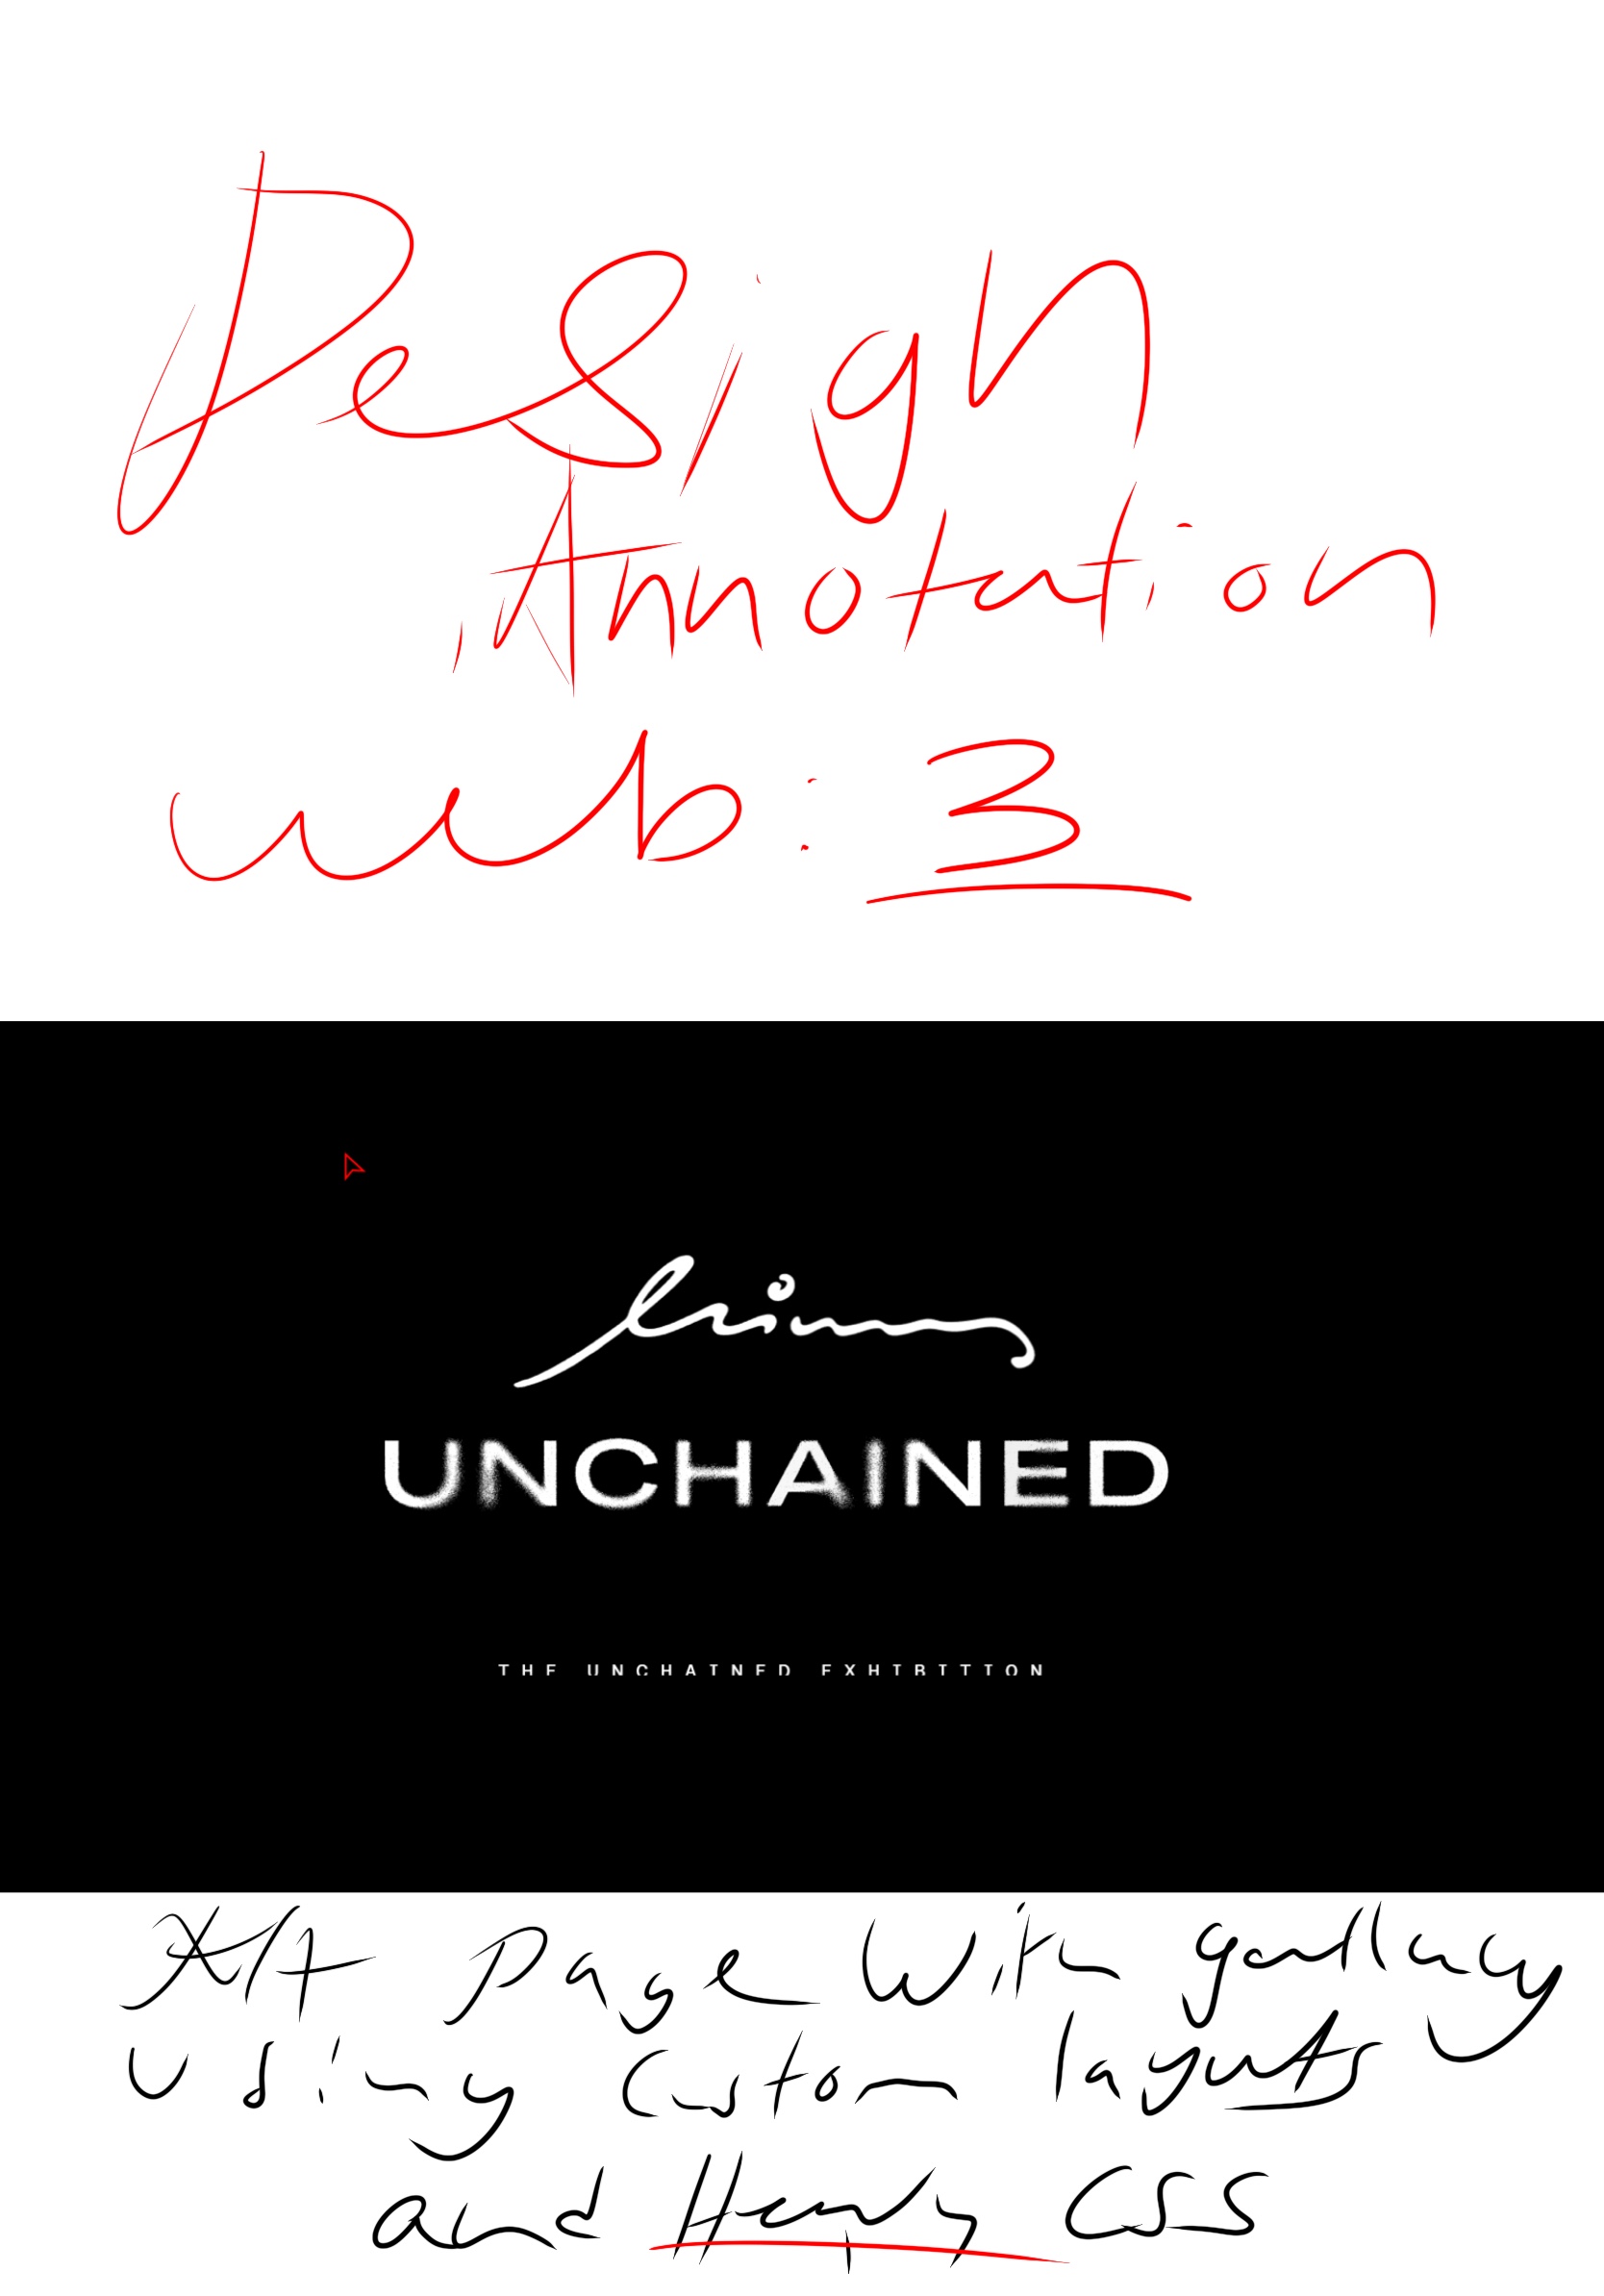 Design
Annotation
web: 3
UNCHAINED
THE UNCHAINED EXHIBITION
page with gallery
using custom layouts
and Heavy CSS